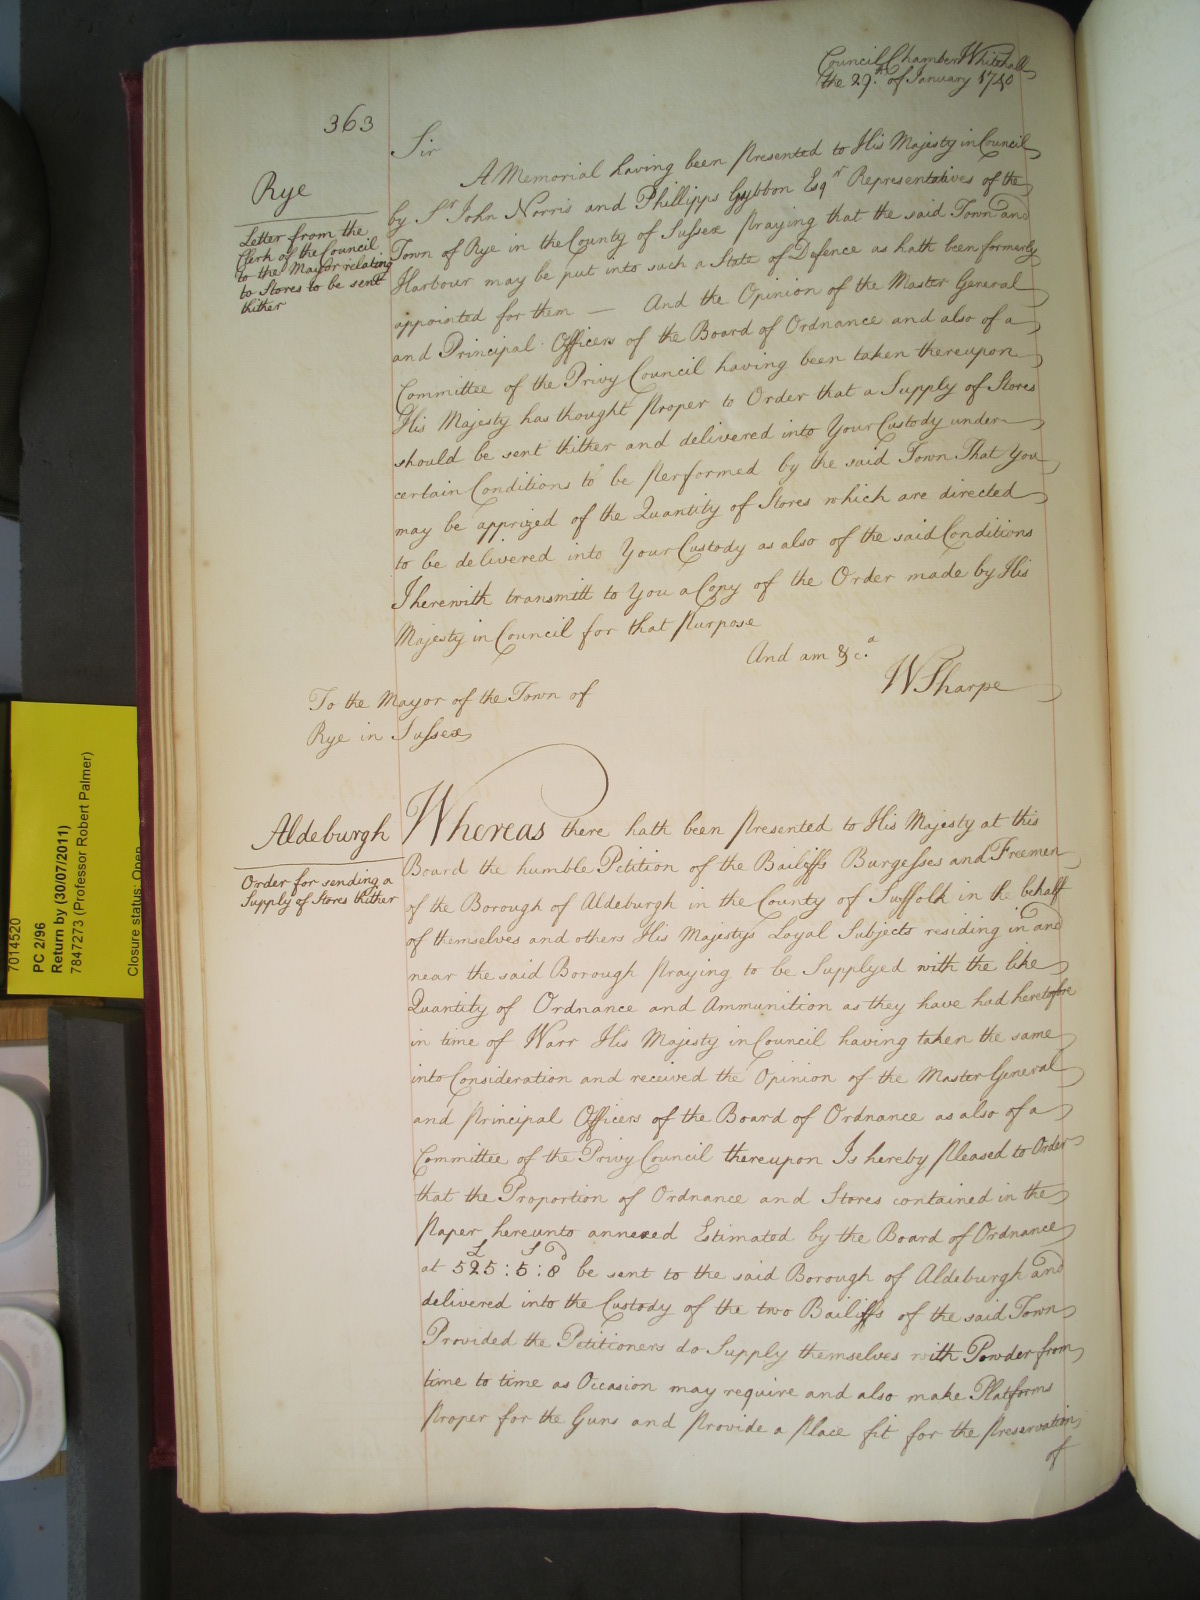 Council Chamber Whitehall
the 29th. of January 1740
363
Sir
A Memorial having been presented to His Majesty in Council
Rye
by Sr. John Norris and Phillipps Gybbon Esqrs Representatives of the
Letter from the
Clerk of the Council
to the Mayor relating
to Stores to be sent
thither
Town of Rye in the County of Sussex praying that the said Town and
Harbour may be put into such a State of Defence as hath been formerly
appointed for them — And the Opinion of the Master General
and Principal Officers of the Board of Ordnance and also of a
Committee of the Privy Council having been taken thereupon
His Majesty has thought proper to Order that a Supply of Stores
should be sent thither and delivered into Your Custody under
certain Conditions to be performed by the said Town That You
may be apprized of the Quantity of Stores which are directed
to be delivered into Your Custody as also of the said Conditions
I herewith transmitt to You a Copy of the Order made by His
Majesty in Council for that Purpose
And am &c.a
W Sharpe
To the Mayor of the Town of
Rye in Sussex
Aldeburgh
Order for sending a
Supply of Stores thither
Whereas there hath been presented to His Majesty at this
Board the humble Petition of the Bailiffs Burgesses and Freemen
of the Borough of Aldeburgh in the County of Suffolk in the behalf
of themselves and others His Majestys Loyal Subjects residing in and
near the said Borough praying to be Supplyed with the like
Quantity of Ordnance and Ammunition as they have had heretofore
in time of Warr His Majesty in Council having taken the same
into Consideration and received the Opinion of the Master General
and principal Officers of the Board of Ordnance as also of a
Committee of the Privy Council thereupon Is hereby pleased to Order
that the Proportion of Ordnance and Stores contained in the
paper hereunto annexed Estimated by the Board of Ordnance
L S D
at 525 : 5 : 8 be sent to the said Borough of Aldeburgh and
delivered into the Custody of the two Bailiffs of the said Town
Provided the Petitioners do Supply themselves with Powder from
time to time as Occasion may require and also make Platforms
proper for the Guns and provide a place fit for the preservation
of
7014520
PC 2/96
Return by (30/07/2011)
7847273 (Professor Robert Palmer)
Closure status: Open